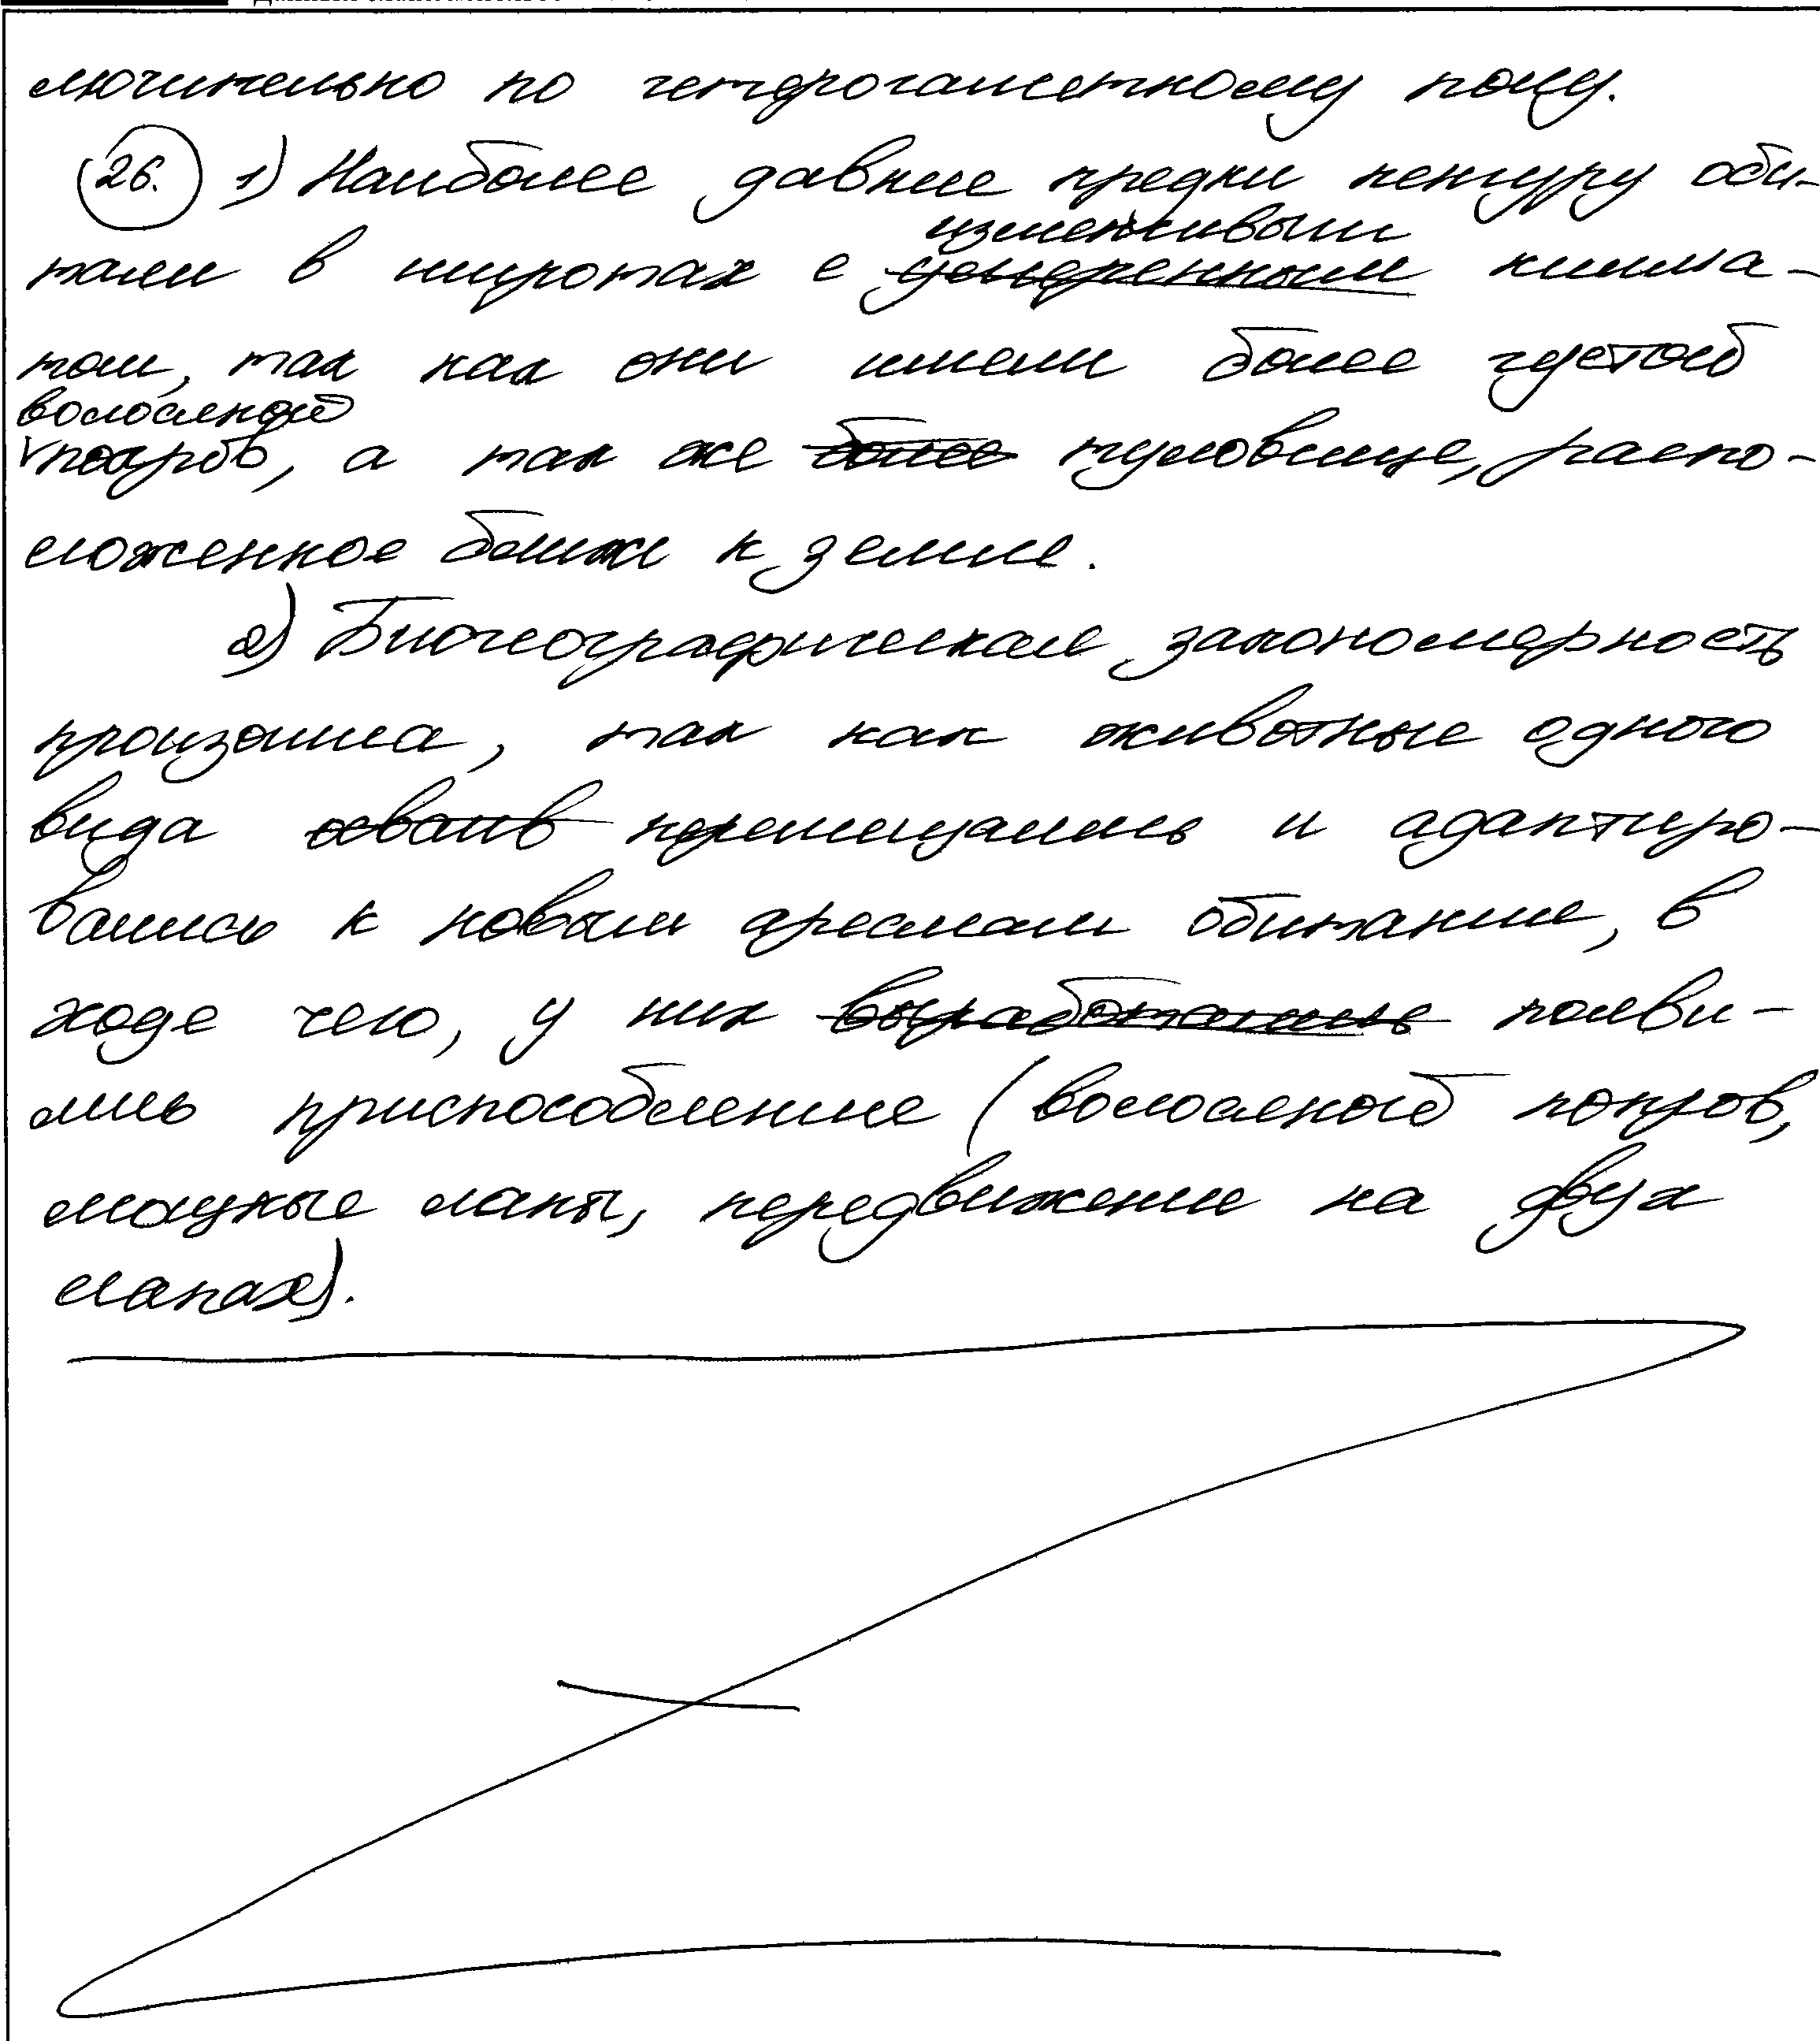 лючительно по гетерогаметному полу.
26. 1) Наиболее давние предки кенгуру оби-
изменчивым
тали в широтах с умеренным клима-
том, так как они имели более густой
волосяной
покров, а так же более туловище, распо-
ложенное ближе к земле.
2) Биогеографическая закономерность
произошла, так как животные одного
вида перемещались и адаптиро-
вались к новым ареалам обитания, в
ходе чего, у них выработались появи-
лись приспособления (волосяной покров,
мощные лапы, передвижение на двух
лапах).